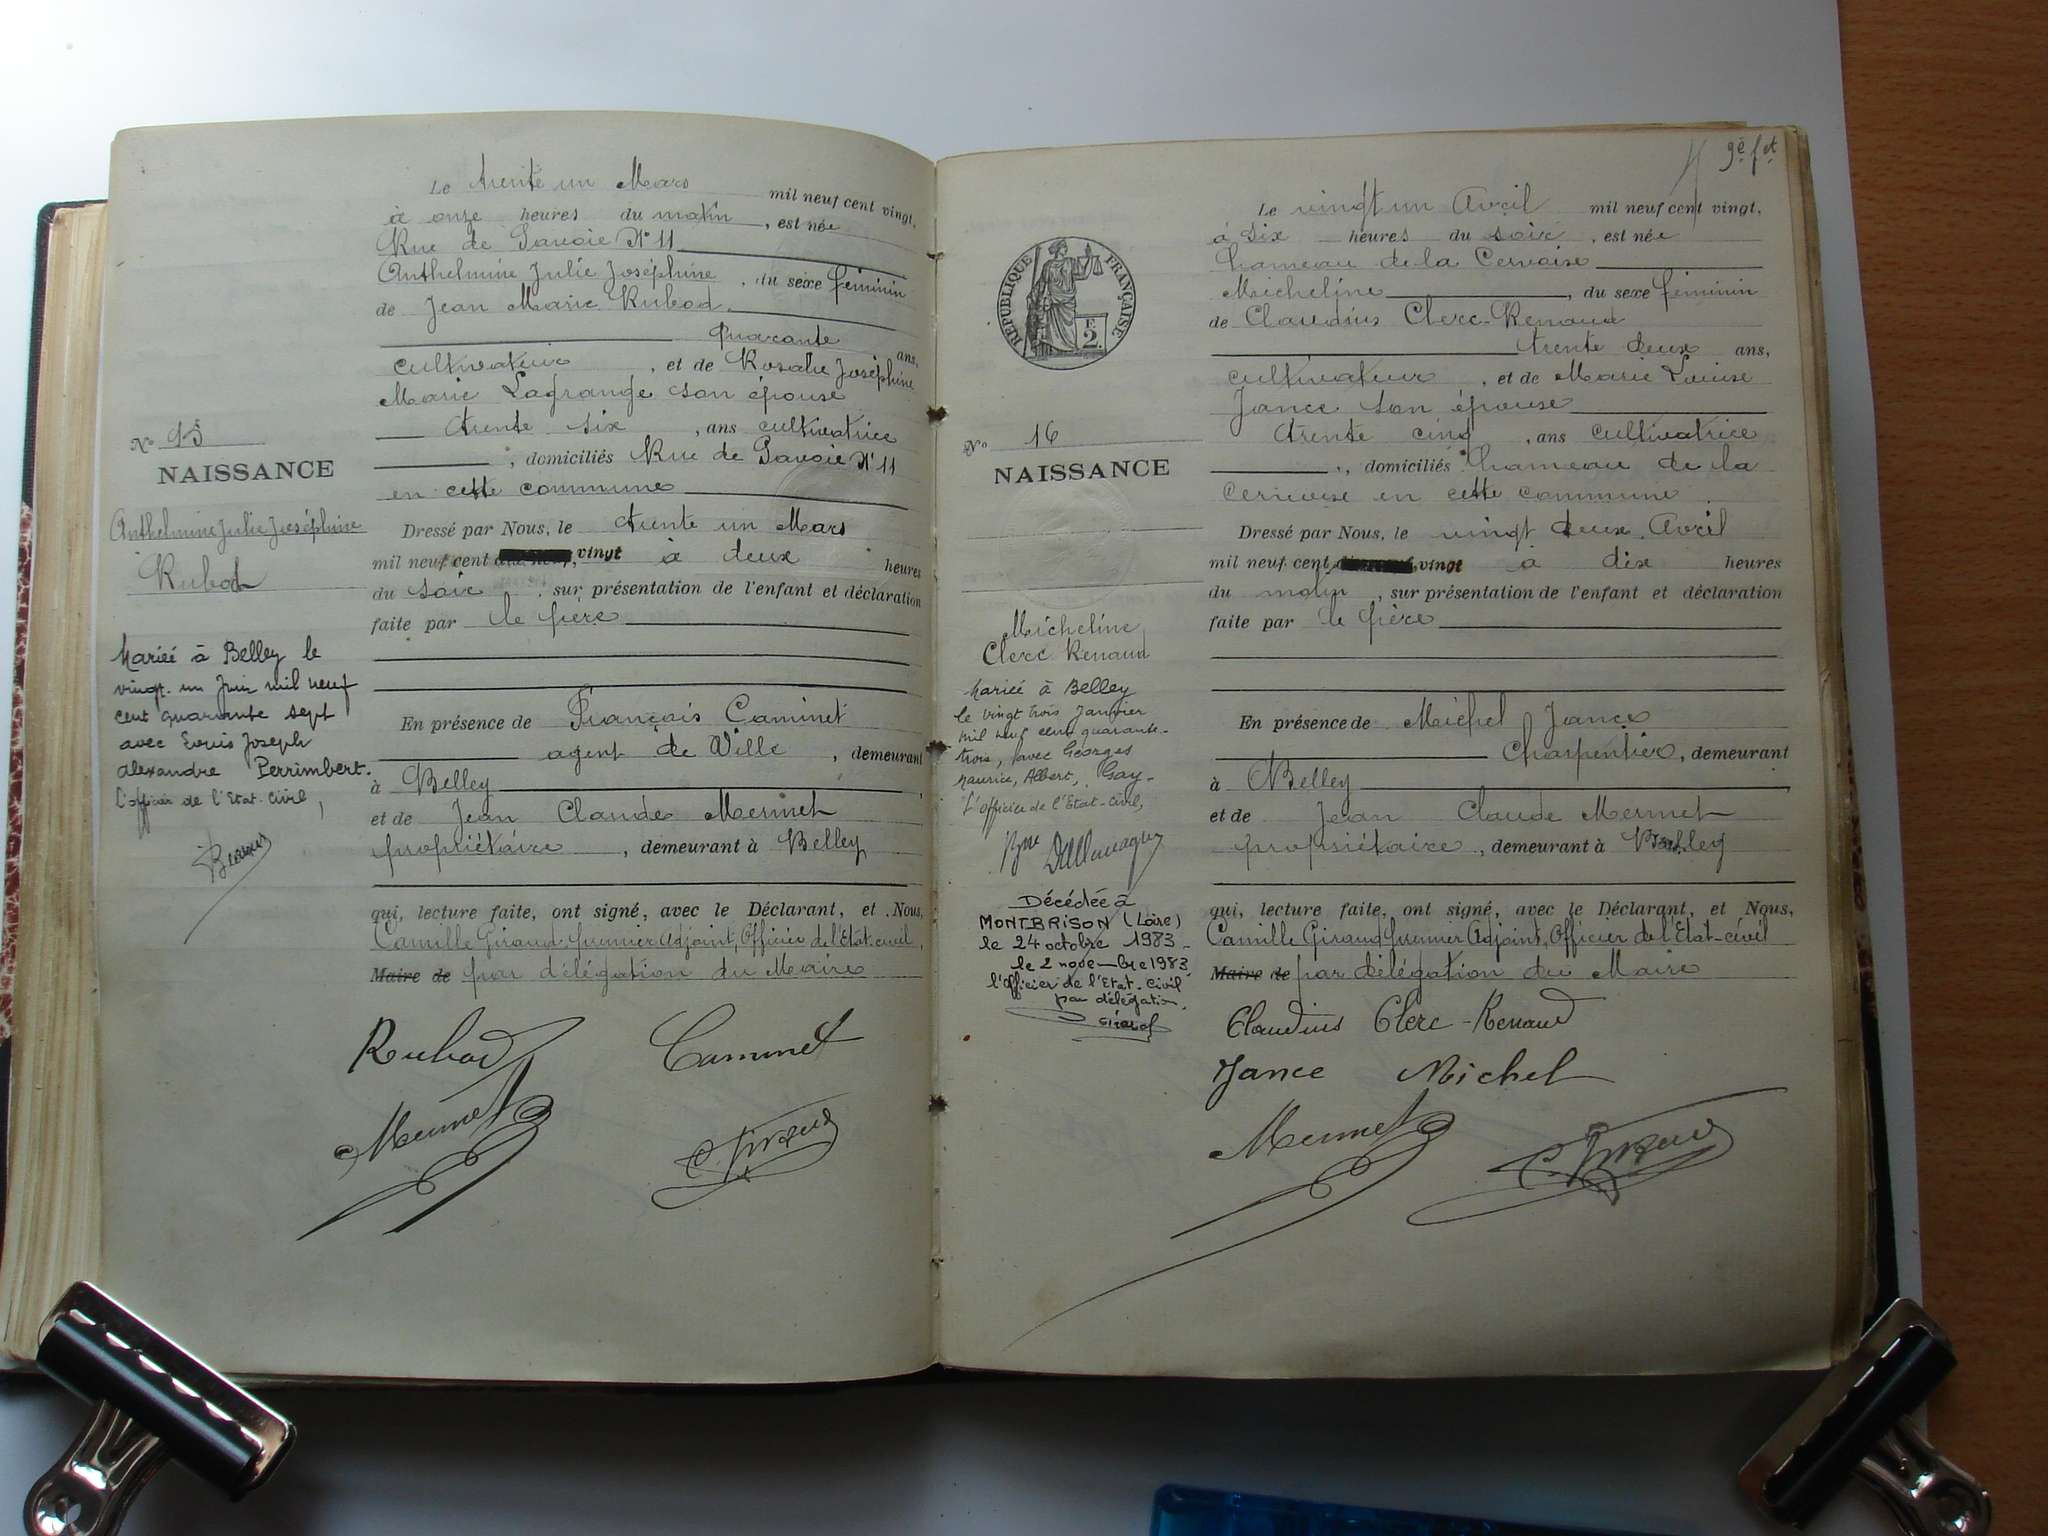 Le trente un Mars mil neuf cent vingt,
à onze heures du matin, est née
Rue de Savoie N° 11
Anthelmine Julie Joséphine, du sexe féminin
de Jean Marie Rubod
Quarante ans,
cultivateur, et de Rosalie Joséphine
Marie Lagrange son épouse
trente six, ans cultivatrice
, domiciliés Rue de Savoie N° 11
en cette commune
N° 15
NAISSANCE
Anthelmine Julie Joséphine
Rubod
Dressé par Nous, le trente un Mars
mil neuf cent vingt à deux heures
du soir, sur présentation de l'enfant et déclaration
faite par le père
Mariée à Belley le
vingt un Juin mil neuf
cent quarante sept
avec Louis Joseph
Alexandre Perrimbert.
L'officier de l'Etat-Civil,
En présence de François Caminet
agent de Ville, demeurant
à Belley,
et de Jean Claude Mermet
propriétaire, demeurant à Belley
qui, lecture faite, ont signé, avec le Déclarant, et Nous,
Camille Giraud premier Adjoint, Officier de l'Etat-civil,
Maire de par délégation du Maire
Rubod Caminet
Mermet C. Giraud
9e fet
Le vingt un Avril mil neuf cent vingt,
à six heures du soir, est née
hameau de la Cervoise
Micheline, du sexe féminin
de Claudius Clerc-Renaud
trente deux ans,
cultivateur, et de Marie Louise
Jance son épouse
trente cinq, ans cultivatrice
, domiciliés hameau de la
Cervoise en cette commune.
RÉPUBLIQUE FRANÇAISE
F
2.
N° 16
NAISSANCE
Micheline
Clerc-Renaud
Dressé par Nous, le vingt deux Avril
mil neuf cent vingt à dix heures
du matin, sur présentation de l'enfant et déclaration
faite par le père
Mariée à Belley
le vingt trois Janvier
mil neuf cent quarante-
trois, avec Georges
Maurice, Albert, Gay-
L'officier de l'Etat-civil,
Décédée à
MONTBRISON (Loire)
le 24 octobre 1983
le 2 novembre 1983
l'officier de l'Etat-Civil
par délégation,
En présence de Michel Jance
Charpentier, demeurant
à Belley
et de Jean Claude Mermet
propriétaire, demeurant à Belley
qui, lecture faite, ont signé, avec le Déclarant, et Nous,
Camille Giraud premier Adjoint, Officier de l'Etat-civil
Maire de par délégation du Maire
Claudius Clerc-Renaud
Jance Michel
Mermet C. Giraud